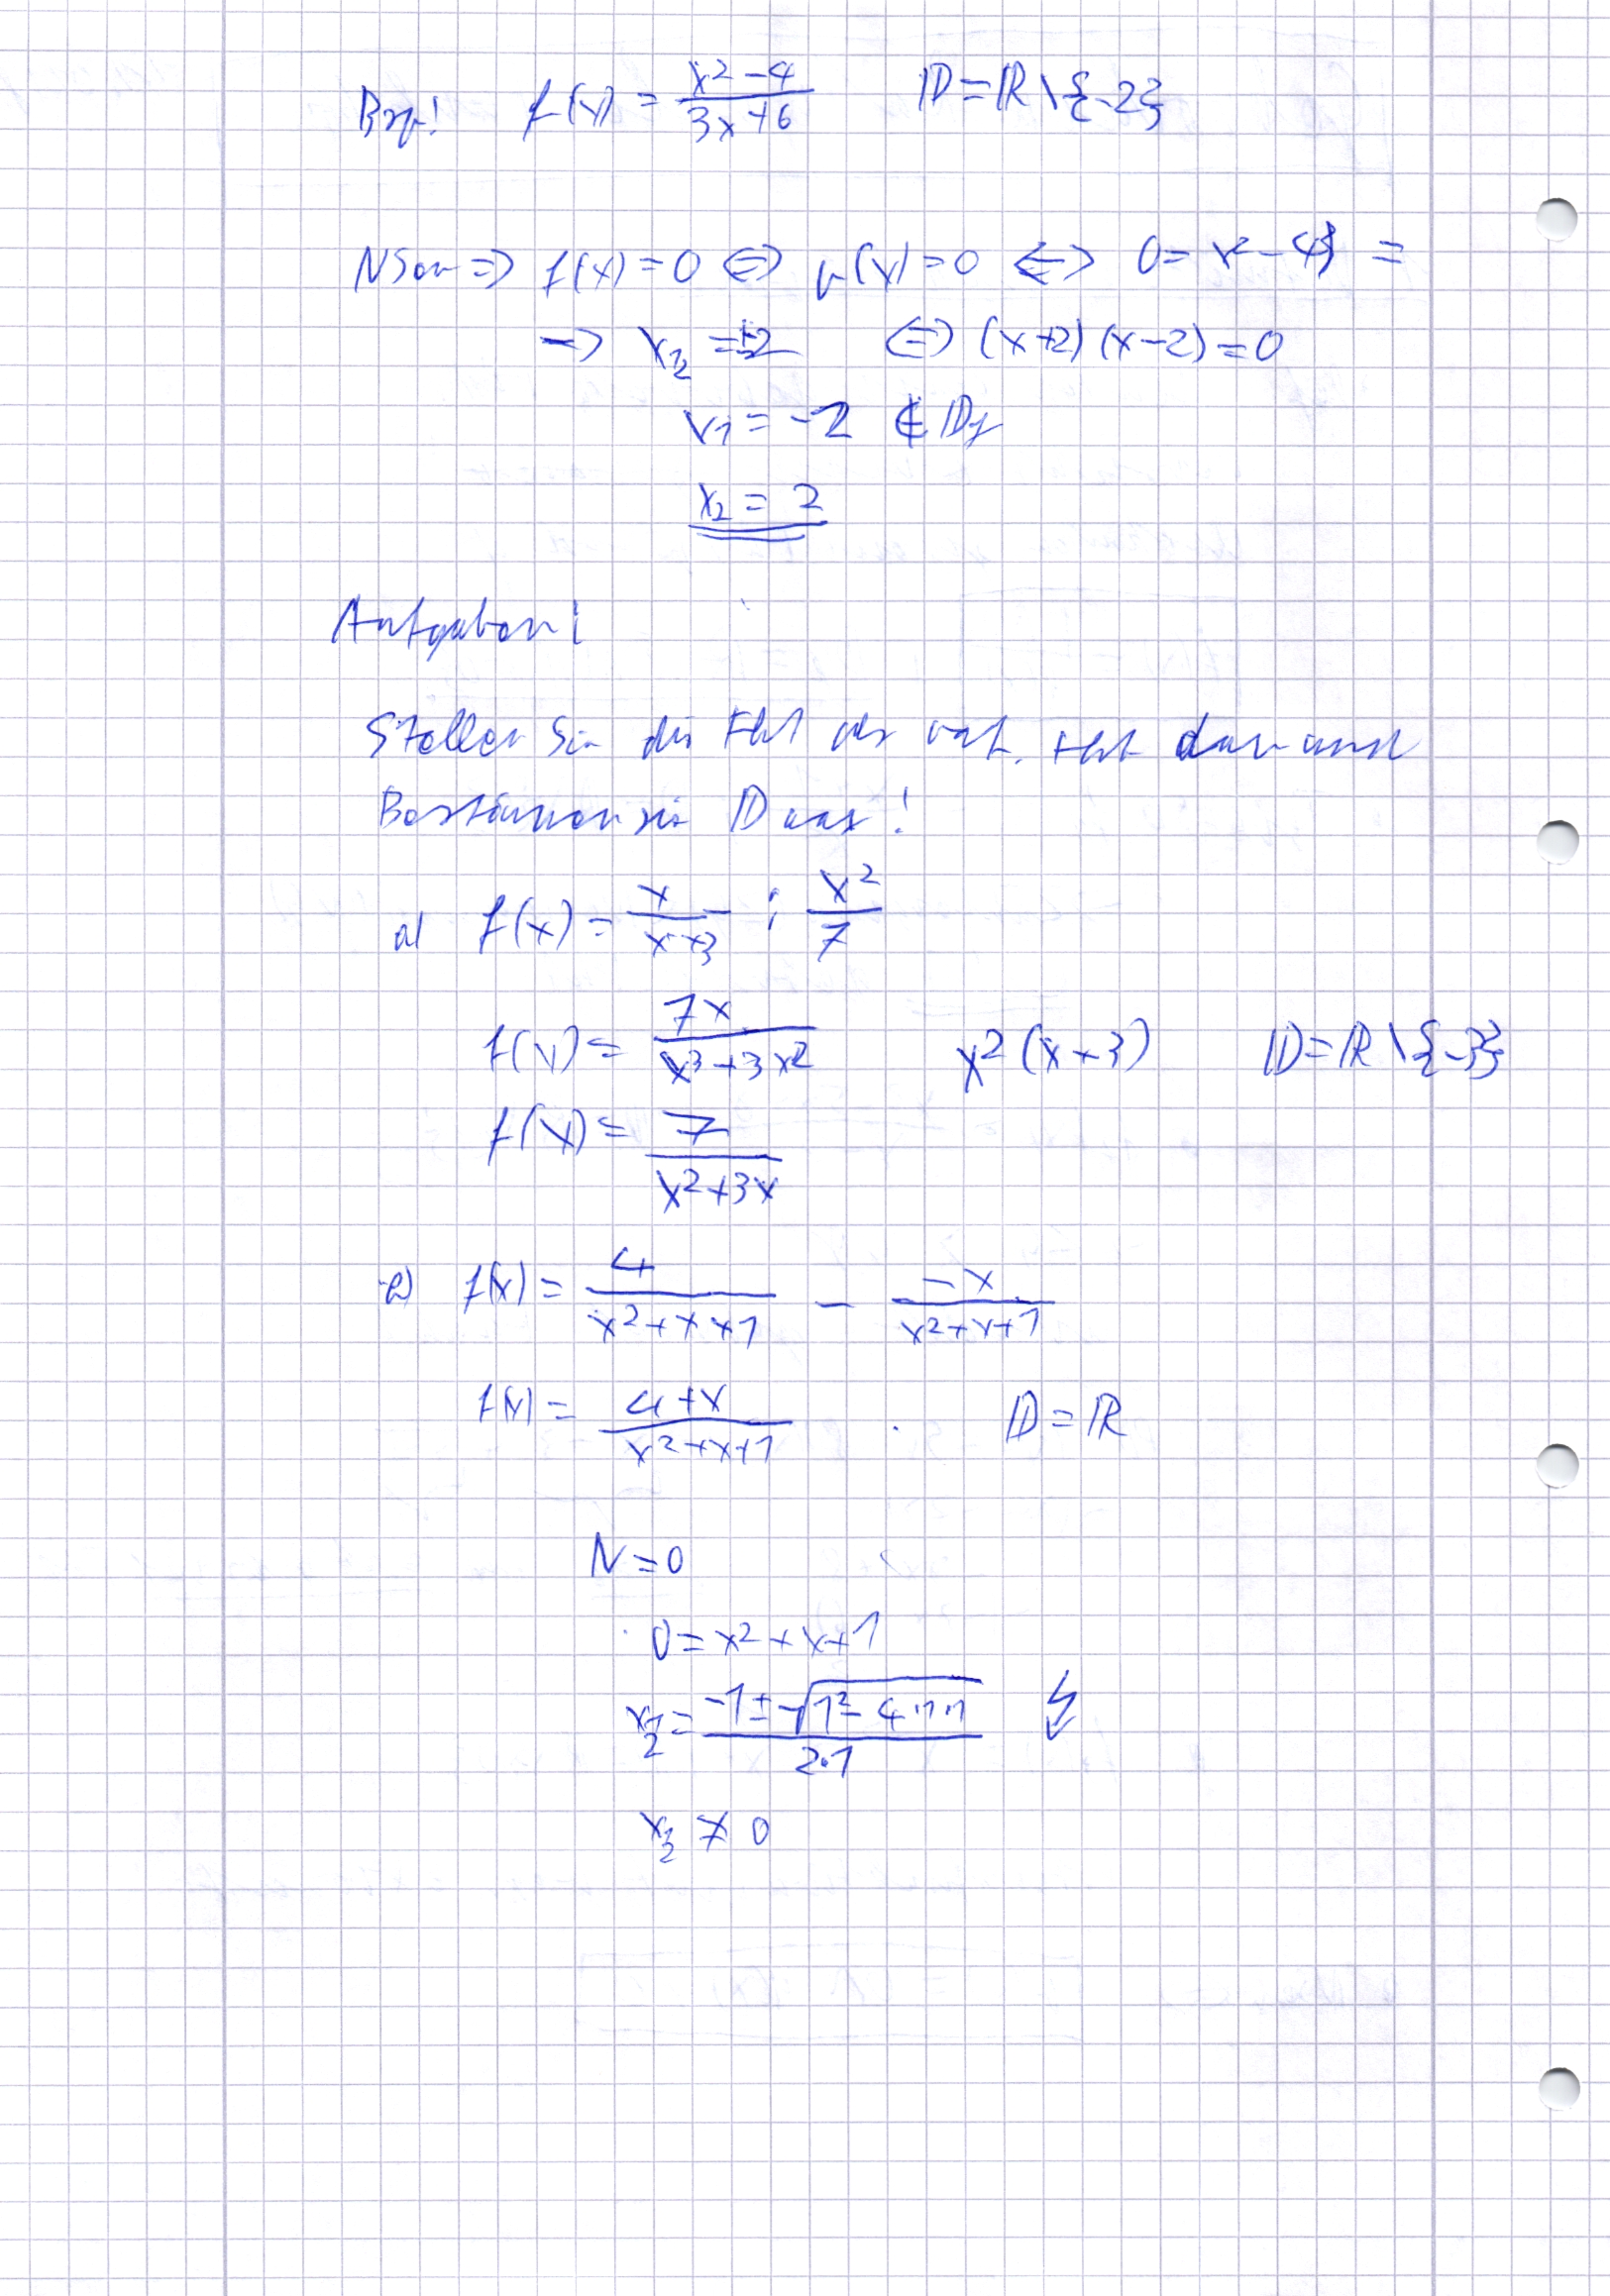 Bsp! f(x) = (x²-4)/(3x+6) D=ℝ\{-2}
NSen => f(x)=0 <=> p(x)=0 <=> 0=x²-4 =
-> x₂ =±2 <=> (x+2)(x-2)=0
x₁=-2 ∉ D_f
x₂ = 2
Aufgaben!
Stellen Sie die Fkt als rat. Fkt dar und
Bestimmen sie D max!
a) f(x)= x/(x+3) : x²/7
f(x)= 7x/(x³+3x²) x²(x+3) D=ℝ\{-3}
f(x)= 7/(x²+3x)
e) f(x)= 4/(x²+x+1) - -x/(x²+x+1)
f(x)= (4+x)/(x²+x+1) D=ℝ
N=0
0=x²+x+1
x₁/₂= (-1±√(1²-4·1·1))/(2·1) ↯
x₁/₂ ≠ 0